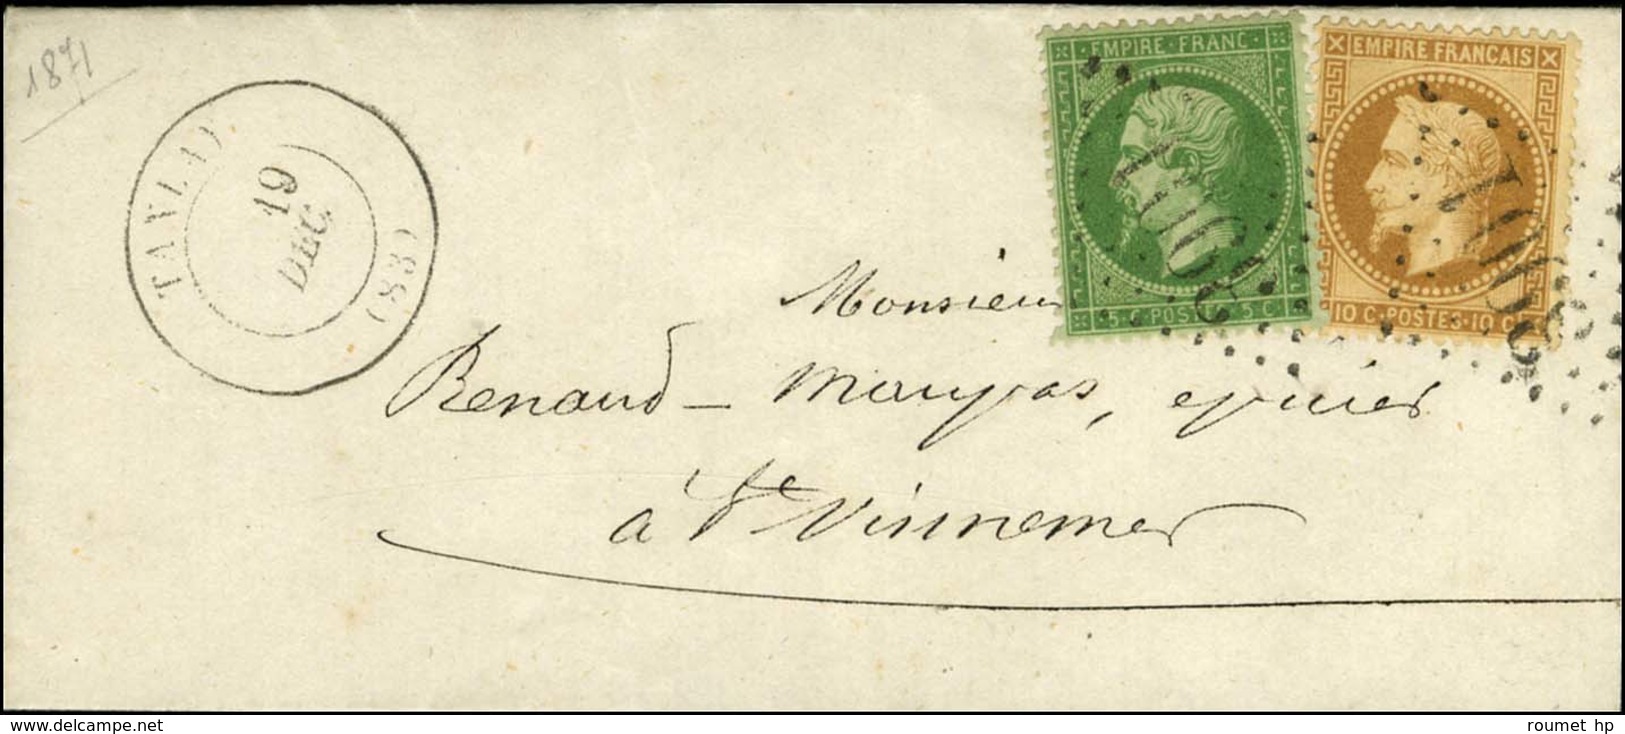 1871
TANLAY
19
DEC.
(88)
EMPIRE FRANC
5 C POSTES 5 C
EMPIRE FRANÇAIS
10 C · POSTES · 10 C
Monsieur
Renaud - Maupas, epicier
à St Vinnemer
www.delcampe.net
roumet hp